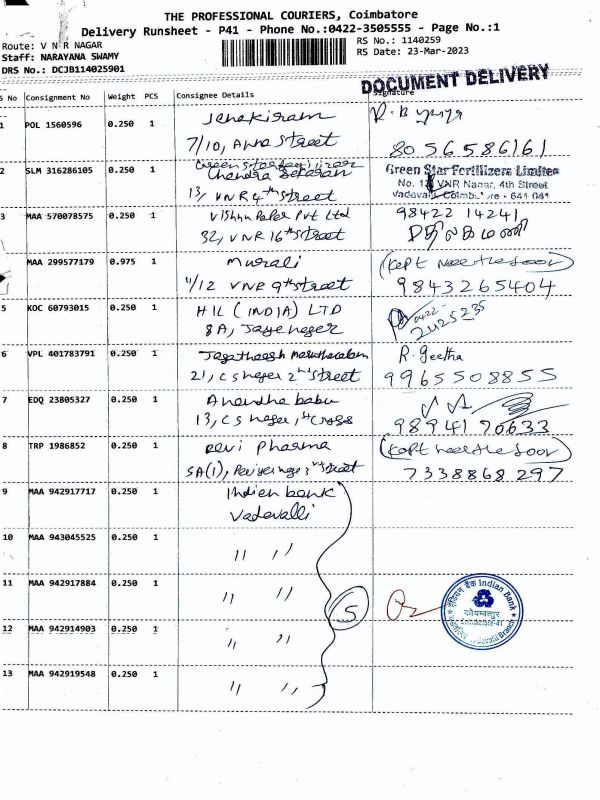 THE PROFESSIONAL COURIERS, Coimbatore
Delivery Runsheet - P41 - Phone No.:0422-3505555 - Page No.:1
Route: V N R NAGAR
Staff: NARAYANA SWAMY
DRS No.: DCJB114025901
RS No.: 1140259
RS Date: 23-Mar-2023
DOCUMENT DELIVERY
S No Consignment No Weight PCS Consignee Details Signature
1 POL 1560596 0.250 1 Janakiram
7/10, Anna Street 80 56 586161
2 SLM 316286105 0.250 1 Chandra Sekaran
13, VNR 4th Street
Green Star Fertilizers Limited
No. 13 VNR Nagar, 4th Street
Vadavalli, Coimbatore - 641 041
3 MAA 570078575 0.250 1 Vishnu Paper Pvt Ltd 98422 14241
32, VNR 16th Street
MAA 299577179 0.975 1 Murali (Kept near the door)
11/12 VNR 9th Street 9843265404
5 KOC 60793015 0.250 1 HIL (INDIA) LTD 0422-
8A, Jaya nagar 2425235
6 VPL 401783791 0.250 1 R. Geetha
21, C S nagar 2nd Street 9965508855
7 EDQ 23805327 0.250 1 Anandha babu
13, C S nagar, 1st Cross 9894170633
8 TRP 1986852 0.250 1 Devi Pharma (Kept near the door)
5A(1), 3rd Street 7338868297
9 MAA 942917717 0.250 1 Indian bank
Vadavalli
10 MAA 943045525 0.250 1 " "
11 MAA 942917884 0.250 1 " " 5
12 MAA 942914903 0.250 1 " "
13 MAA 942919548 0.250 1 " "
इंडियन बैंक Indian Bank
कोयम्बत्तूर
Coimbatore-41
Vadavalli Branch